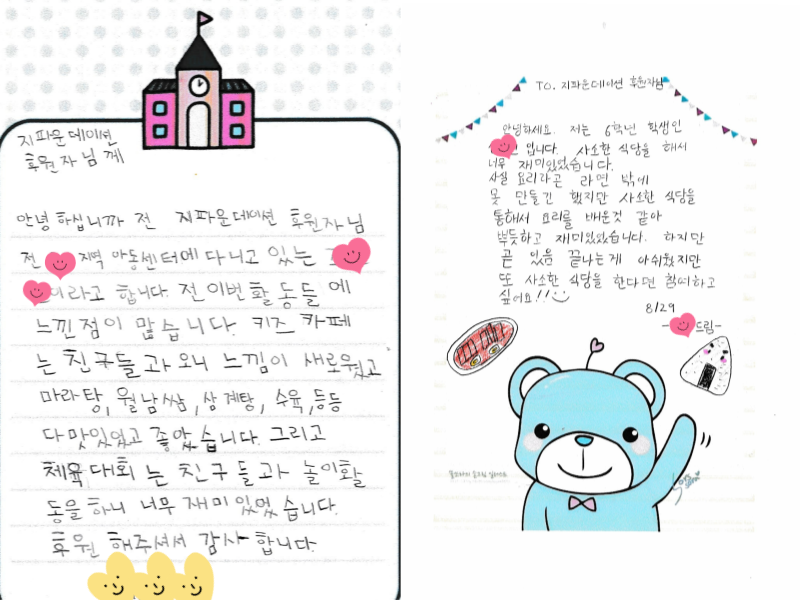 지파운데이션
후원자님께
안녕하십니까 전 지파운데이션 후원자님
전 지역 아동센터에 다니고 있는
이라고 합니다. 전 이번 활동들에
느낀점이 많습니다. 키즈 카페
는 친구들과 오니 느낌이 새로웠고
마라탕, 월남쌈, 삼계탕, 수육, 등등
다 맛있었고 좋았습니다. 그리고
체육대회는 친구들과 놀이활
동을 하니 너무 재미있었습니다.
후원 해주셔서 감사합니다.
TO. 지파운데이션 후원자님
안녕하세요. 저는 6학년 학생인
입니다. 사소한 식당을 해서
너무 재미있었습니다.
사실 요리라곤 라면 밖에
못 만들긴 했지만 사소한 식당을
통해서 요리를 배운것 같아
뿌듯하고 재미있었습니다. 하지만
곧 있음 끝나는게 아쉬웠지만
또 사소한 식당을 한다면 참여하고
싶어요!!
8/29
- 드림-